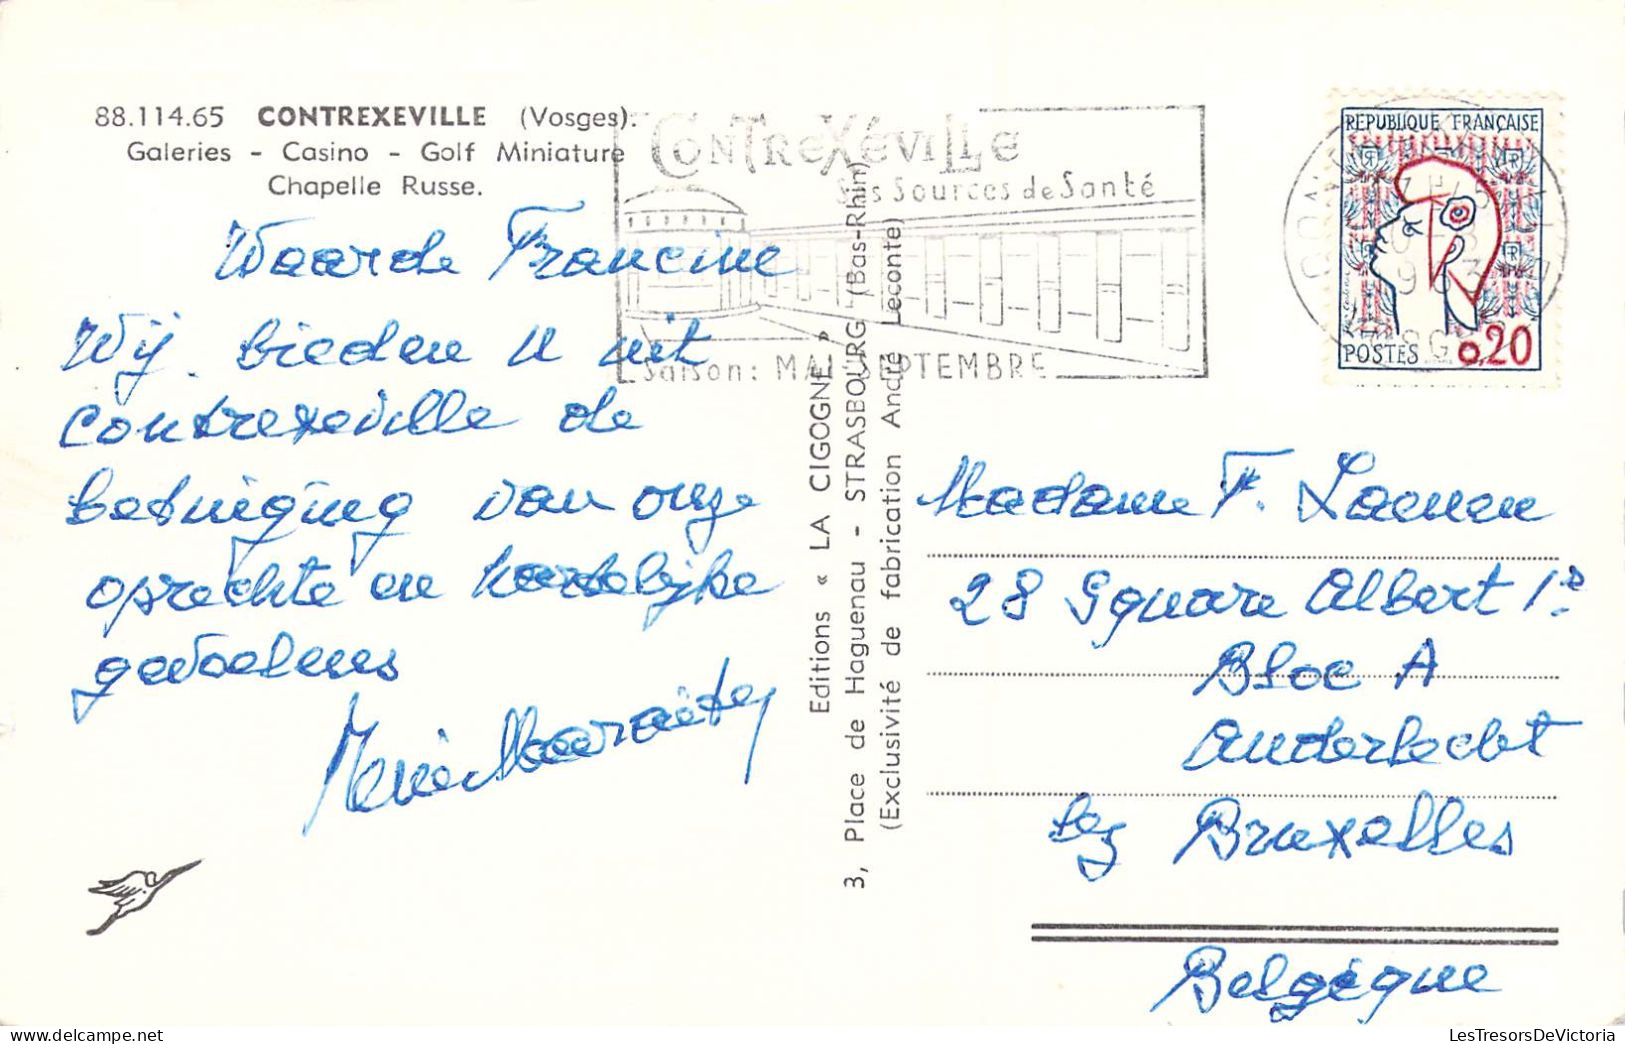 88.114.65 CONTREXEVILLE (Vosges).
Galeries - Casino - Golf Miniature
Chapelle Russe.
Waarde Francine
Wij bieden U uit
Contrexeville de
betuiging van onze
oprechte en hartelijke
gevoelens
Editions « LA CIGOGNE »
3, Place de Haguenau - STRASBOURG (Bas-Rhin)
(Exclusivité de fabrication André Leconte)
CONTREXéVILLE
Ses Sources de Santé
Saison: MAI-SEPTEMBRE
REPUBLIQUE FRANÇAISE
POSTES 0,20
Madame F. Laenen
28 Square Albert 1er
Bloc A
Anderlecht
lez Bruxelles
Belgique
LesTresorsDeVictoria.com